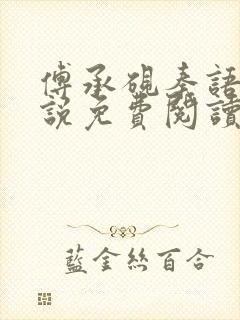 傅承硯秦語
說免費閱讀
藍金絲百合